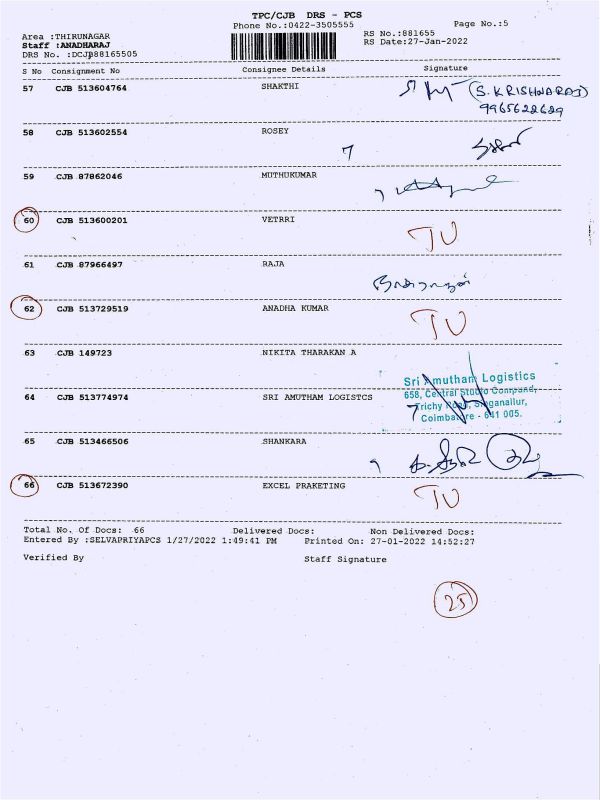 TPC/CJB DRS - PCS
Phone No.:0422-3505555 Page No.:5
Area :THIRUNAGAR RS No.:881655
Staff :ANADHARAJ RS Date:27-Jan-2022
DRS No. :DCJB88165505
S No Consignment No Consignee Details Signature
57 CJB 513604764 SHAKTHI (S.KRISHNARAJ)
9965622629
58 CJB 513602554 ROSEY
59 CJB 87862046 MUTHUKUMAR
60 CJB 513600201 VETRRI TU
61 CJB 87966497 RAJA
62 CJB 513729519 ANADHA KUMAR TU
63 CJB 149723 NIKITA THARAKAN A
Sri Amutham Logistics
64 CJB 513774974 SRI AMUTHAM LOGISTCS 658, Central Studio Compund,
Trichy Road, Singanallur,
Coimbatore - 641 005.
65 CJB 513466506 SHANKARA
66 CJB 513672390 EXCEL PRAKETING TU
Total No. Of Docs: 66 Delivered Docs: Non Delivered Docs:
Entered By :SELVAPRIYAPCS 1/27/2022 1:49:41 PM Printed On: 27-01-2022 14:52:27
Verified By Staff Signature
25